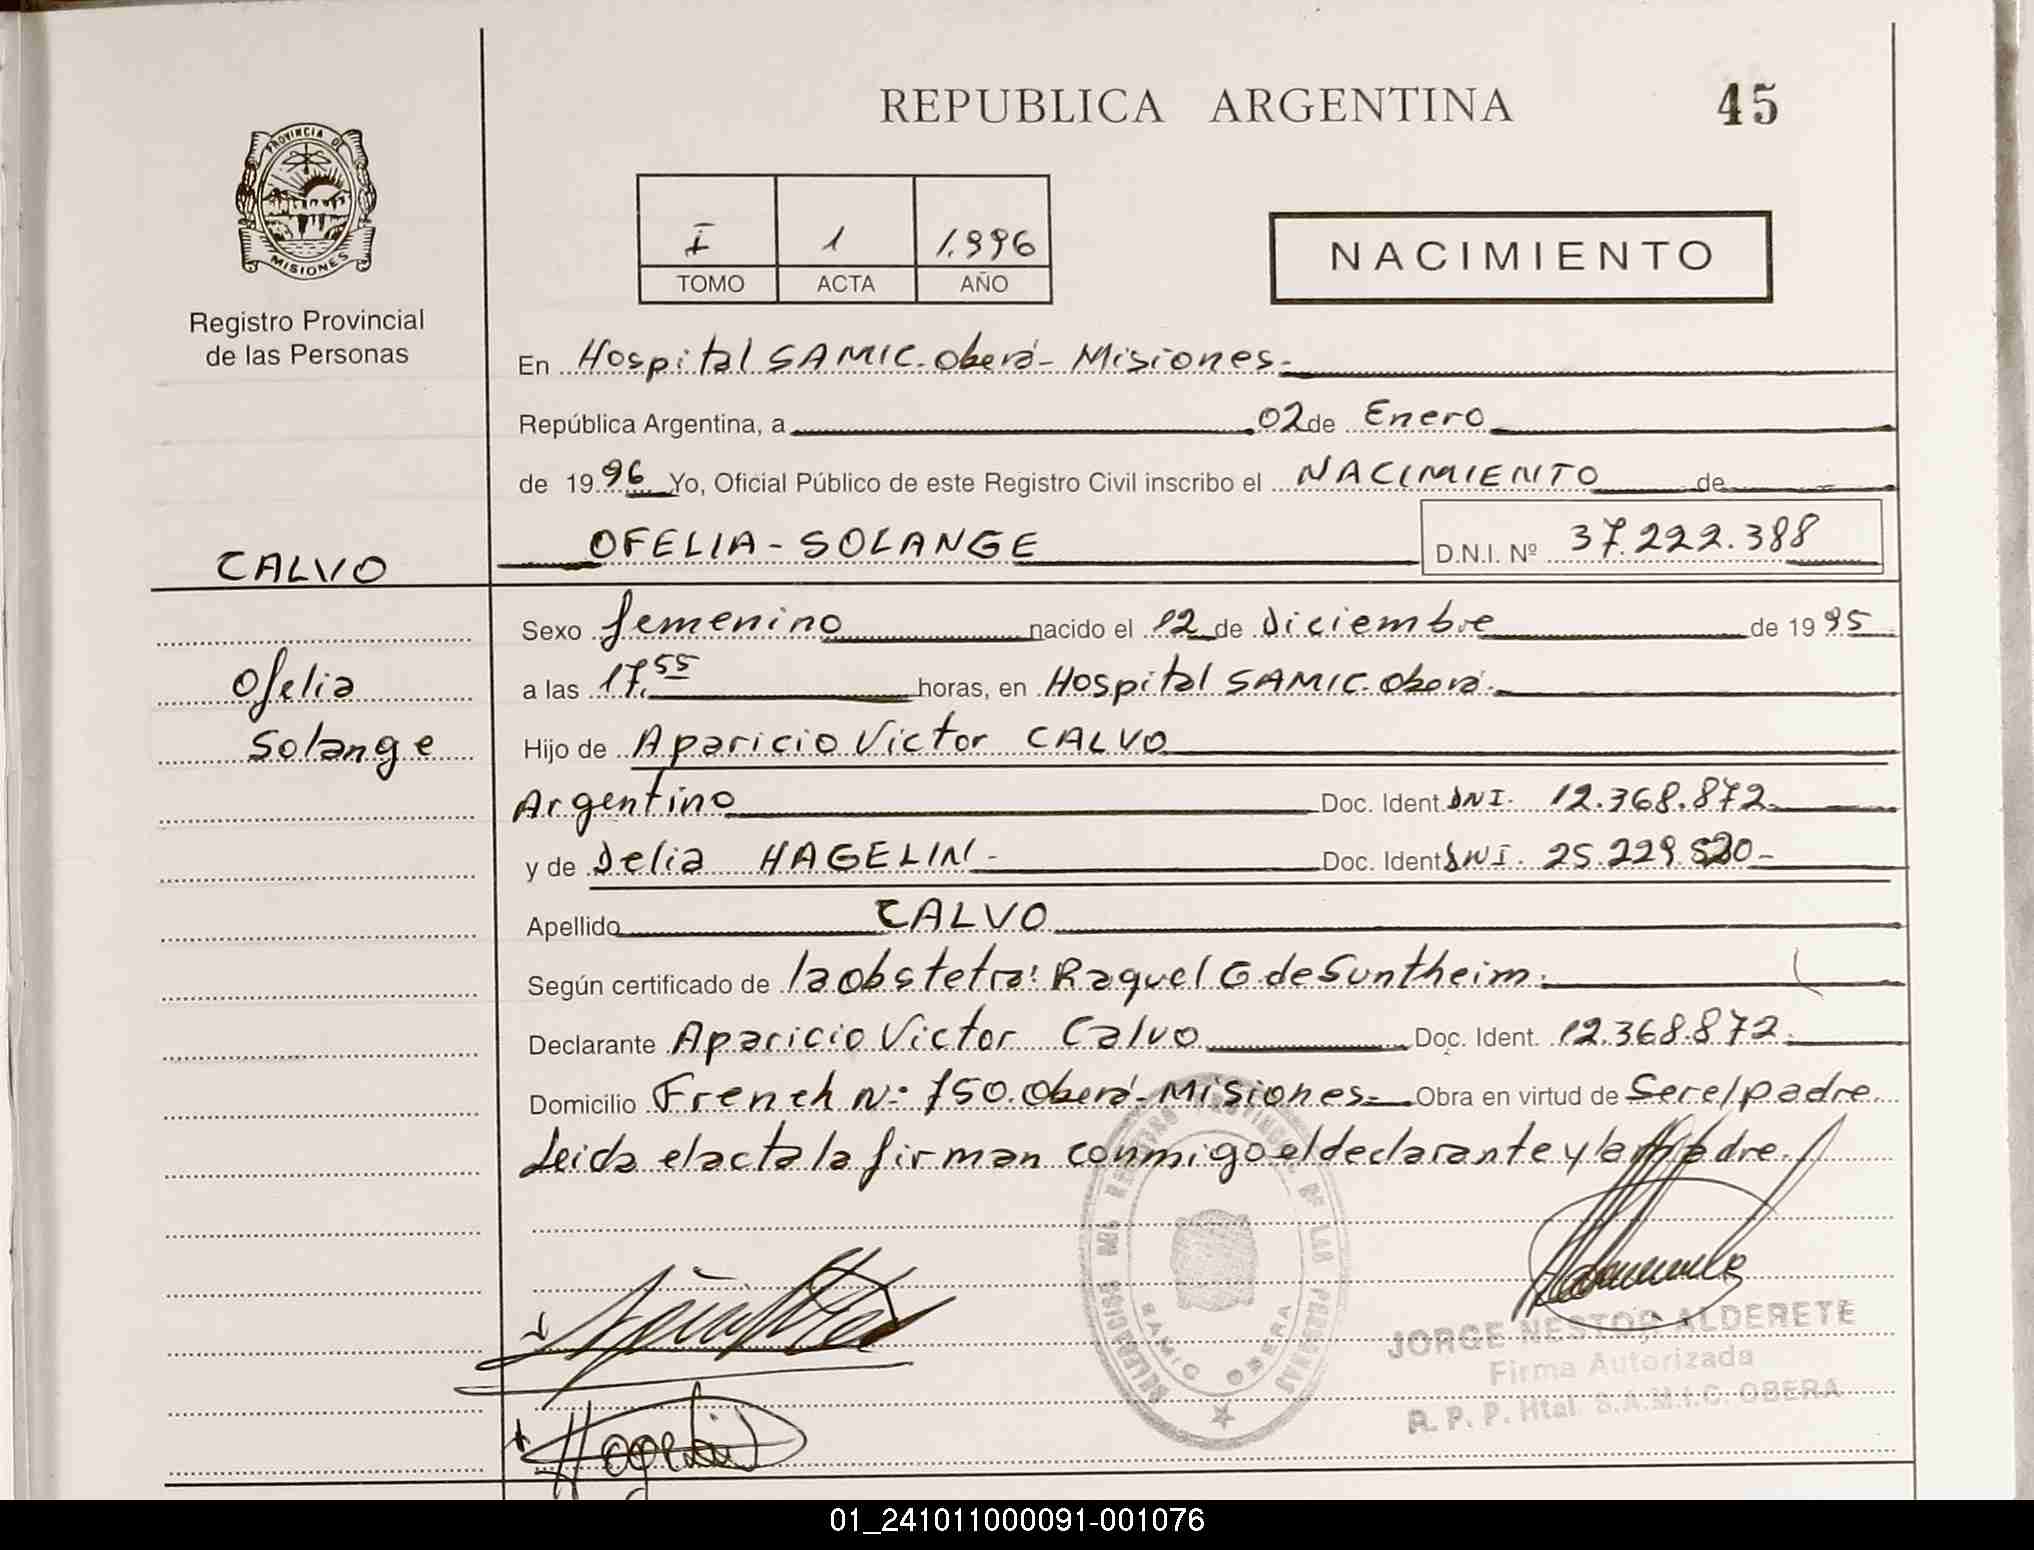 REPUBLICA ARGENTINA
45
PROVINCIA DE
MISIONES
Registro Provincial
de las Personas
I 1 1.996
TOMO ACTA AÑO
NACIMIENTO
En Hospital SAMIC. Oberá - Misiones.-
República Argentina, a 02 de Enero
de 1996 Yo, Oficial Público de este Registro Civil inscribo el NACIMIENTO de
CALVO
OFELIA - SOLANGE
D.N.I. Nº 37.222.388
Ofelia
Solange
Sexo femenino nacido el 12 de diciembre de 1995
a las 17.55 horas, en Hospital SAMIC. Oberá.
Hijo de Aparicio Victor CALVO
Argentino Doc. Ident. DNI. 12.368.872.
y de Delia HAGELIN - Doc. Ident. DNI. 25.229.520-
Apellido CALVO
Según certificado de la obstetra: Raquel G. de Suntheim.
Declarante Aparicio Victor Calvo Doc. Ident. 12.368.872.
Domicilio French Nº 750. Oberá - Misiones.- Obra en virtud de Ser el padre
Leida el acta la firman conmigo el declarante y la madre.
DELEGACION DEL REGISTRO PROVINCIAL DE LAS PERSONAS
SAMIC OBERA
JORGE NESTOR ALDERETE
Firma Autorizada
R. P. P. Htal. S.A.M.I.C. OBERA
01_241011000091-001076